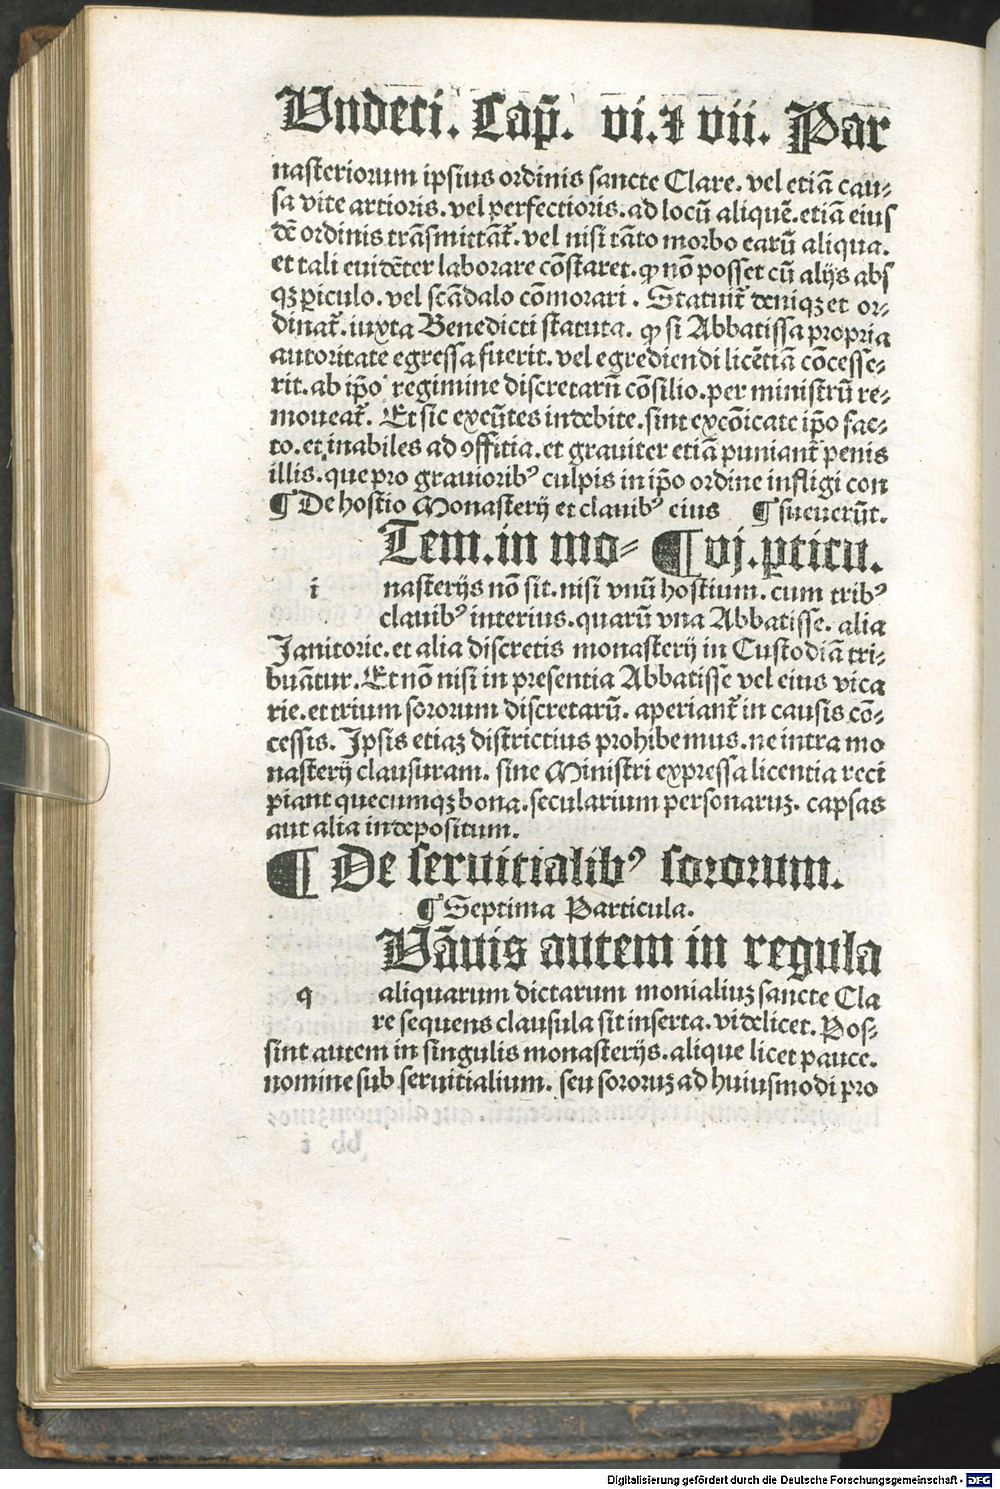 Undeci. Cap̃. vi. ⁊ vii. Par
nasteriorum ipsius ordinis sancte Clare. vel etiã cau⸗
sa vite artioris. vel perfectioris. ad locũ aliquẽ. etiã eius
dẽ ordinis trãsmittãt᷑. vel nisi tãto morbo earũ aliqua.
et tali euidẽter laborare cõstaret. ꝙ nõ posset cũ alijs abs
qꝫ ꝑiculo. vel scãdalo cõmorari. Statuit᷑ deniqꝫ et or⸗
dinat᷑. iuxta Benedicti statuta. ꝙ si Abbatissa propria
autoritate egressa fuerit. vel egrediendi licẽtiã cõcesse⸗
rit. ab ip̃o regimine discretarũ cõsilio. per ministrũ re⸗
moueat᷑. Et sic exeũtes indebite. sint excõicate ip̃o fac⸗
to. et inabiles ad ꝯffitia. et grauiter etiã puniant᷑ penis
illis. que pro grauioribꝰ culpis in ip̃o ordine infligi con
¶ De hostio Monasterij et clauibꝰ eius ¶ sueuerũt.
Tem. in mo⸗ ¶ vj. ꝑticu.
i nasterijs nõ sit. nisi vnũ hostium. cum tribꝰ
clauibꝰ interius. quarũ vna Abbatisse. alia
Janitorie. et alia discretis monasterij in Custodiã tri⸗
buãtur. Et nõ nisi in presentia Abbatisse vel eius vica
rie. et trium sororum discretarũ. aperiant᷑ in causis cõ⸗
cessis. Ipsis etiaꝫ districtius prohibemus. ne intra mo
nasterij clausuram. sine Ministri expressa licentia reci
piant quecumqꝫ bona. secularium personaruꝫ. capsas
aut alia in depositum.
¶ De seruitialibꝰ sororum.
¶ Septima Particula.
Uãuis autem in regula
q aliquarum dictarum monialiuꝫ sancte Cla
re sequens clausula sit inserta. videlicet. Pos⸗
sint autem in singulis monasterijs. alique licet pauce.
nomine sub seruitialium. seu sororuꝫ ad huiusmodi pro
Digitalisierung gefördert durch die Deutsche Forschungsgemeinschaft - DFG